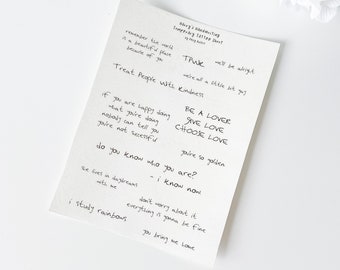 Harry's Handwriting
Temporary Tattoo Sheet
remember the world
is a beautiful place
because of you
TPWK
we'll be alright
we're all a little bit gay
Treat People With Kindness
if you are happy doing
what you're doing
nobody can tell you
you're not successful
BE A LOVER
GIVE LOVE
CHOOSE LOVE
you're so golden
do you know who you are?
- i know now
she lives in daydreams
with me
don't worry about it
everything is gonna be fine
i study rainbows
you bring me home